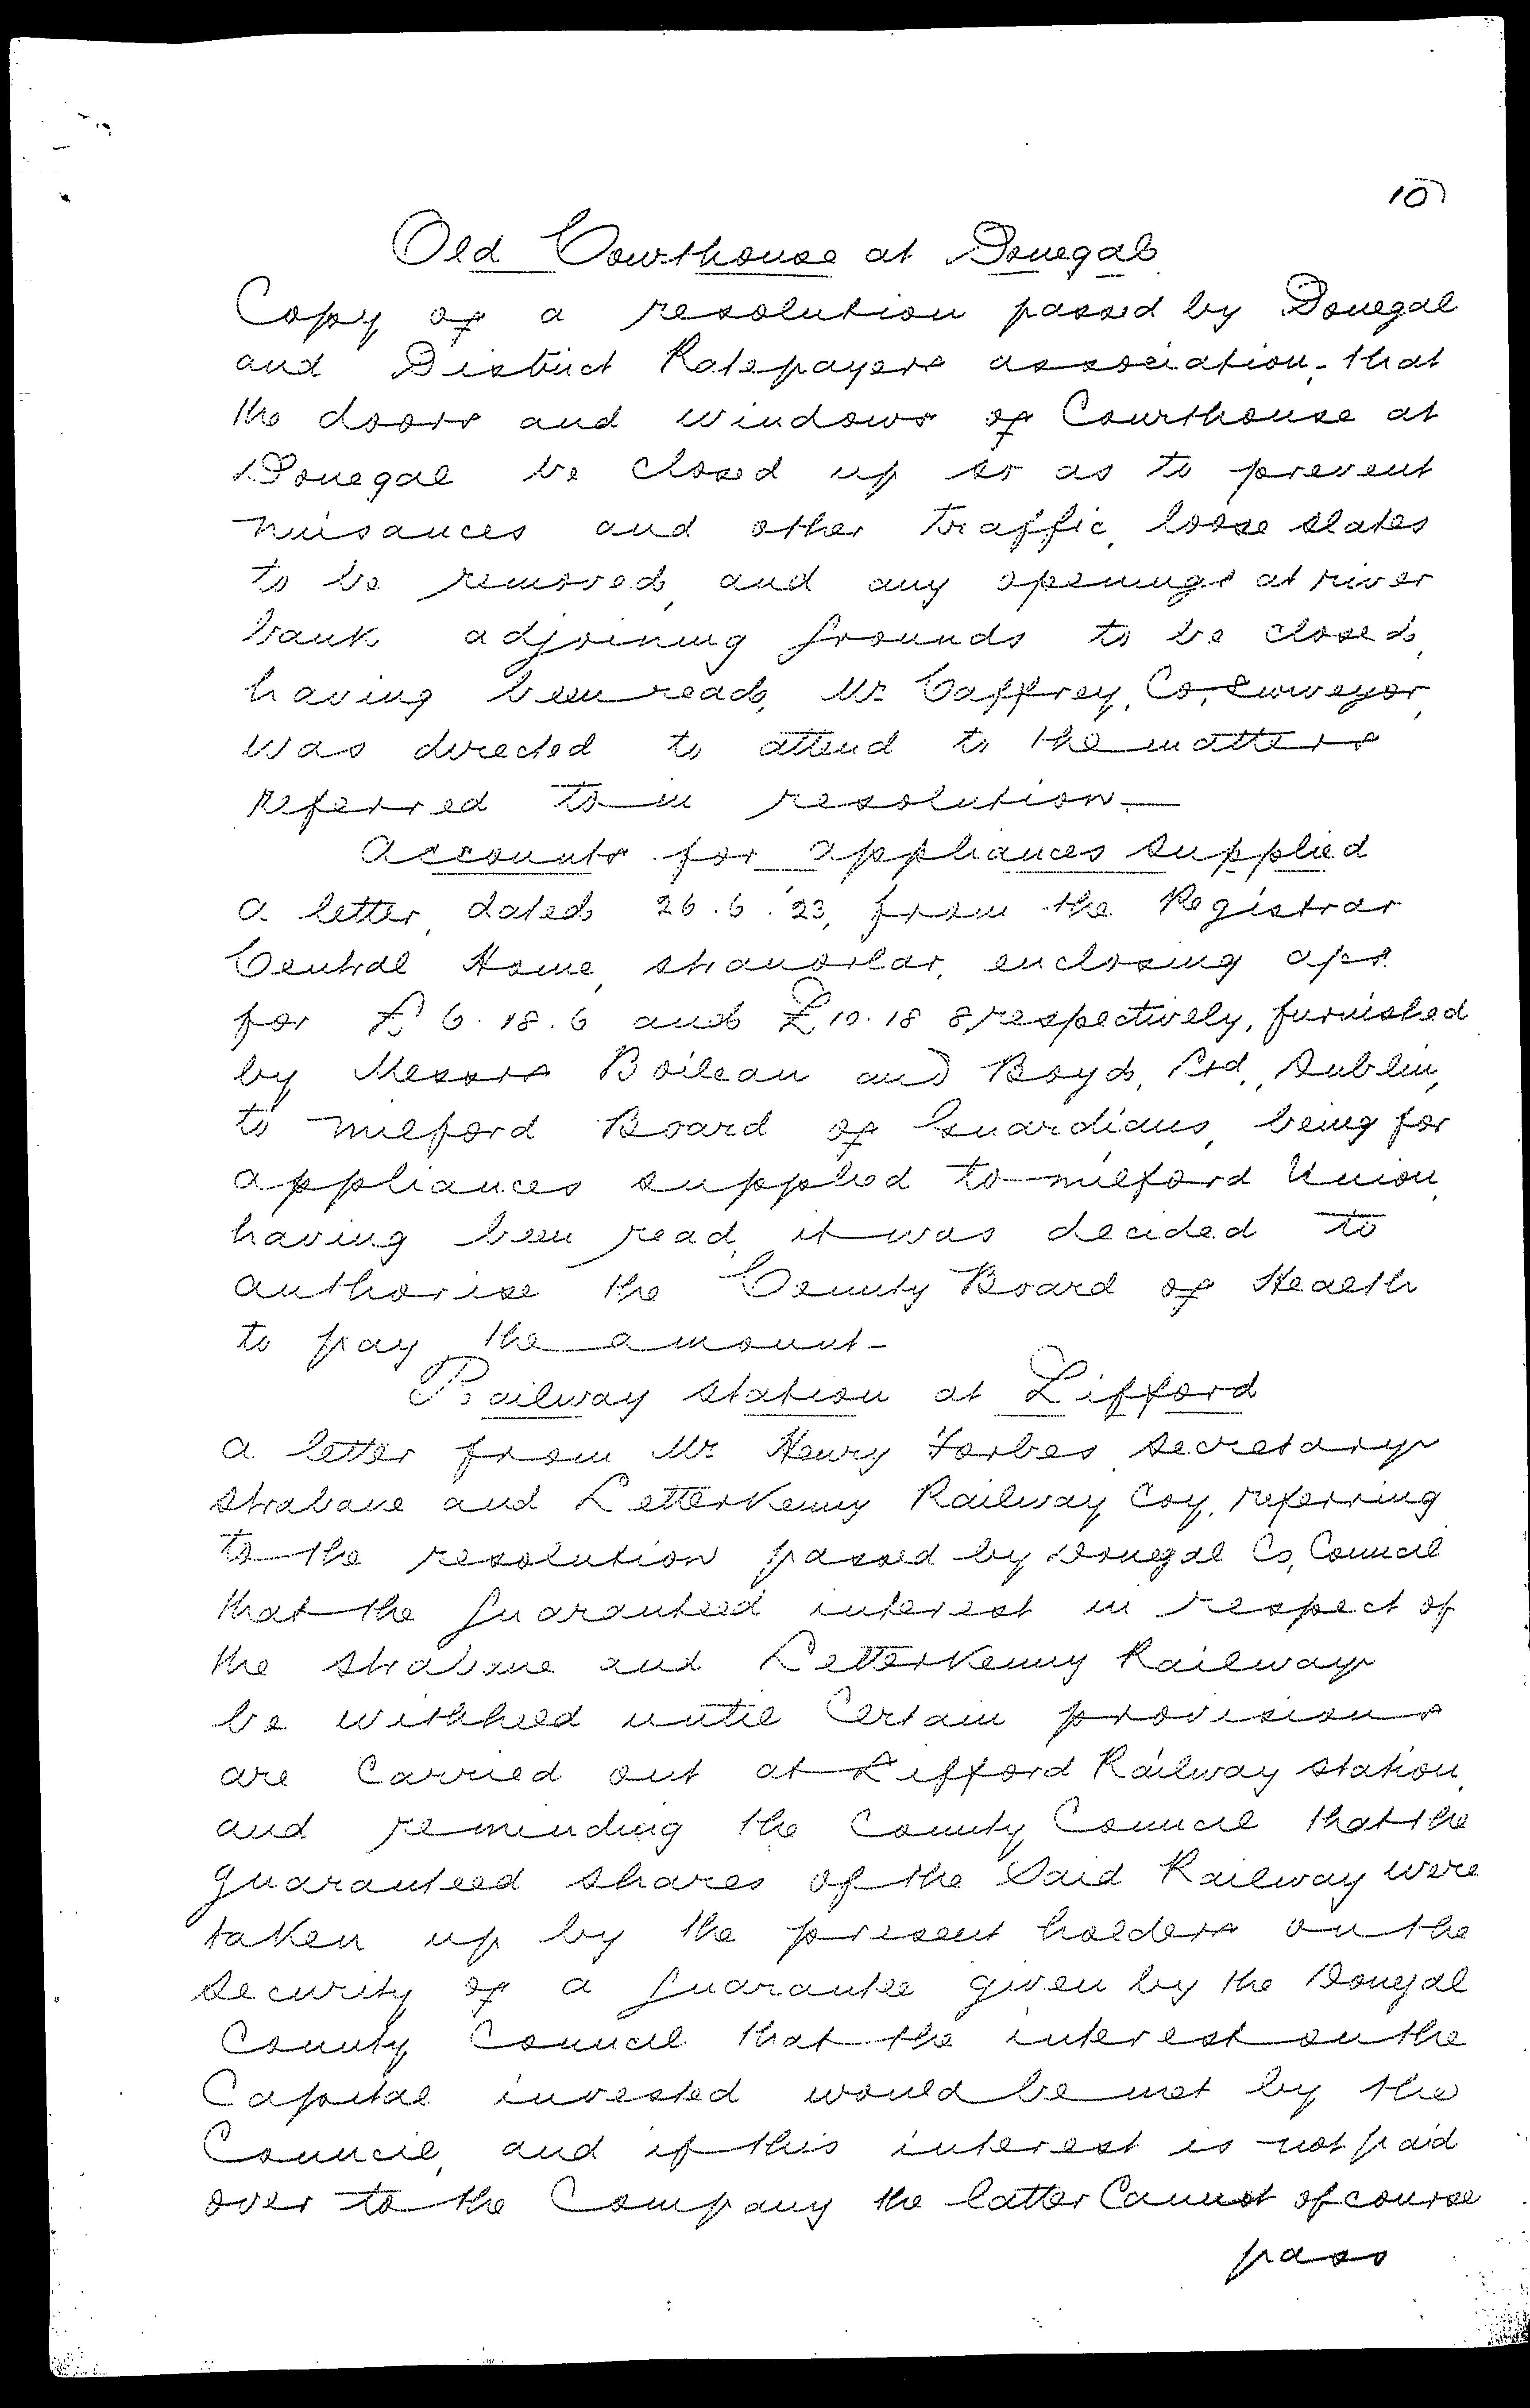 10
Old Courthouse at Donegal
Copy of a resolution passed by Donegal
and District Ratepayers association, that
the doors and windows of Courthouse at
Donegal be closed up so as to prevent
nuisances and other traffic, loose slates
to be removed, and any openings at river
bank adjoining grounds to be closed,
having been read, Mr. Caffrey, Co, Surveyor,
was directed to attend to the matters
referred to in resolution.
Accounts for appliances supplied
a letter, dated 26.6.'23, from the Registrar
Central Home, Stranorlar, enclosing a/cs
for £6.18.6 and £10.18 8 respectively, furnished
by Messrs Boileau and Boyd, Ltd, Dublin,
to Milford Board of Guardians, being for
appliances supplied to Milford Union,
having been read, it was decided to
authorise the County Board of Health
to pay the amount-
Railway Station at Lifford
a letter from Mr. Henry Forbes, Secretary
Strabane and Letterkenny Railway Coy, referring
to the resolution passed by Donegal Co, Council
that the guaranteed interest in respect of
the Strabane and Letterkenny Railway
be withheld until certain provisions
are carried out at Lifford Railway Station,
and reminding the County Council that the
guaranteed shares of the said Railway were
taken up by the present holders on the
security of a guarantee given by the Donegal
County Council that the interest on the
Capital invested would be met by the
Council, and if this interest is not paid
over to the Company the latter cannot of course
pass